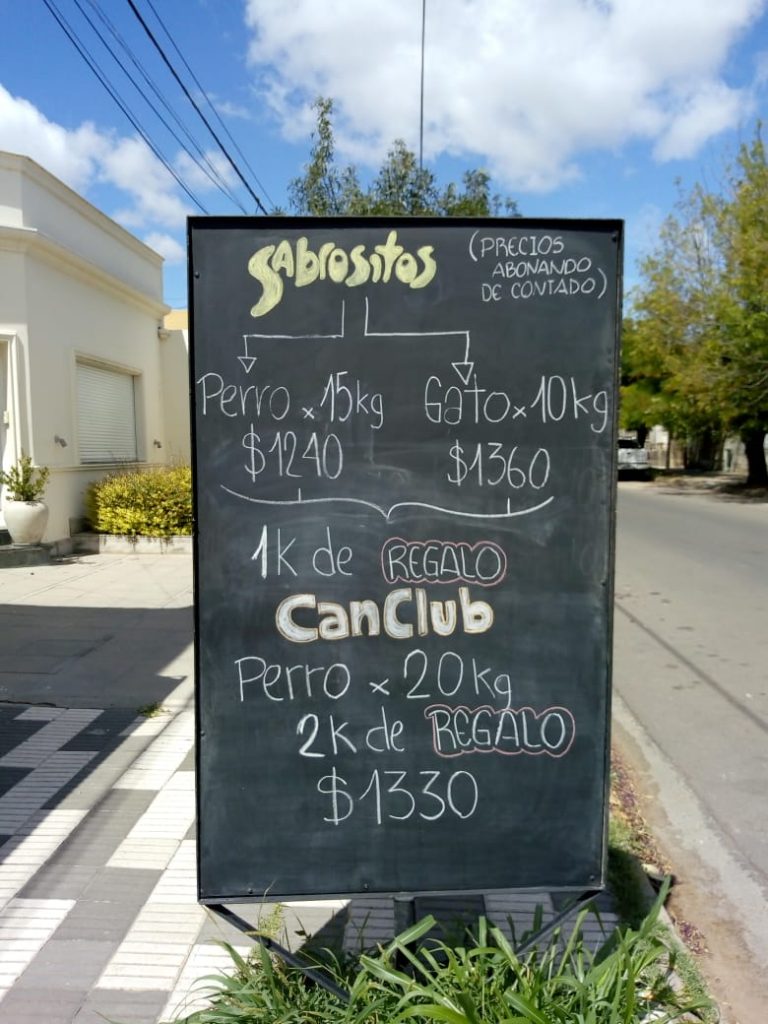 SABROSITOS
(PRECIOS
ABONANDO
DE CONTADO)
Perro x 15kg
Gato x 10kg
$1240
$1360
1K de REGALO
CanClub
Perro x 20kg
2K de REGALO
$1330